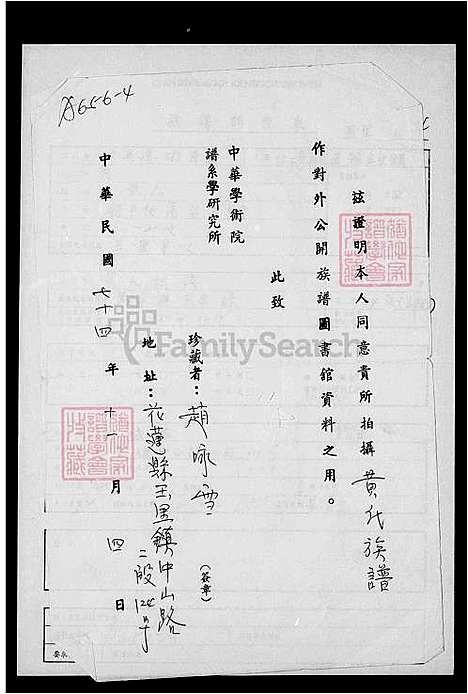 A656-4
茲證明本人同意貴所拍攝黃氏族譜
作對外公開族譜圖書館資料之用。
此致
中華學術院
譜系學研究所
珍藏者：趙咏雪（簽章）
地址：花蓮縣玉里鎮中山路
二段124号
中華民國七十四年十一月四日
FamilySearch